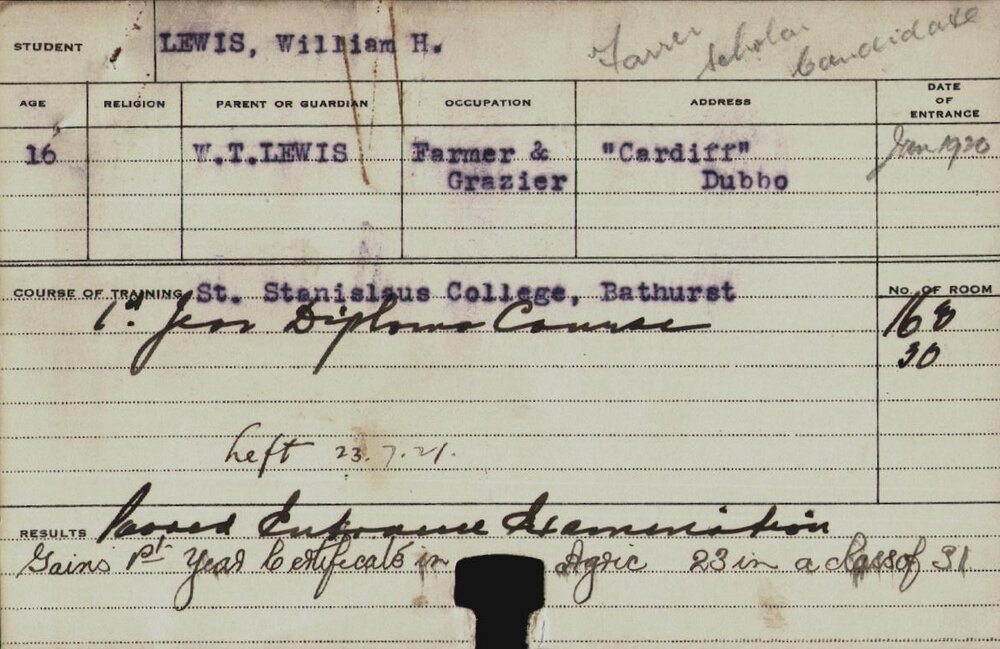 STUDENT LEWIS, William H. Farrer Scholar Candidate
AGE RELIGION PARENT OR GUARDIAN OCCUPATION ADDRESS DATE OF ENTRANCE
16 W.T.LEWIS Farmer & "Cardiff" Jan 1920
Grazier Dubbo
COURSE OF TRAINING St. Stanislaus College, Bathurst No. OF ROOM
1st Year Diploma Course 168
30
Left 23.7.21.
RESULTS Passed Entrance Examination
Gains 1st Year Certificate in Agric 23 in a class of 31